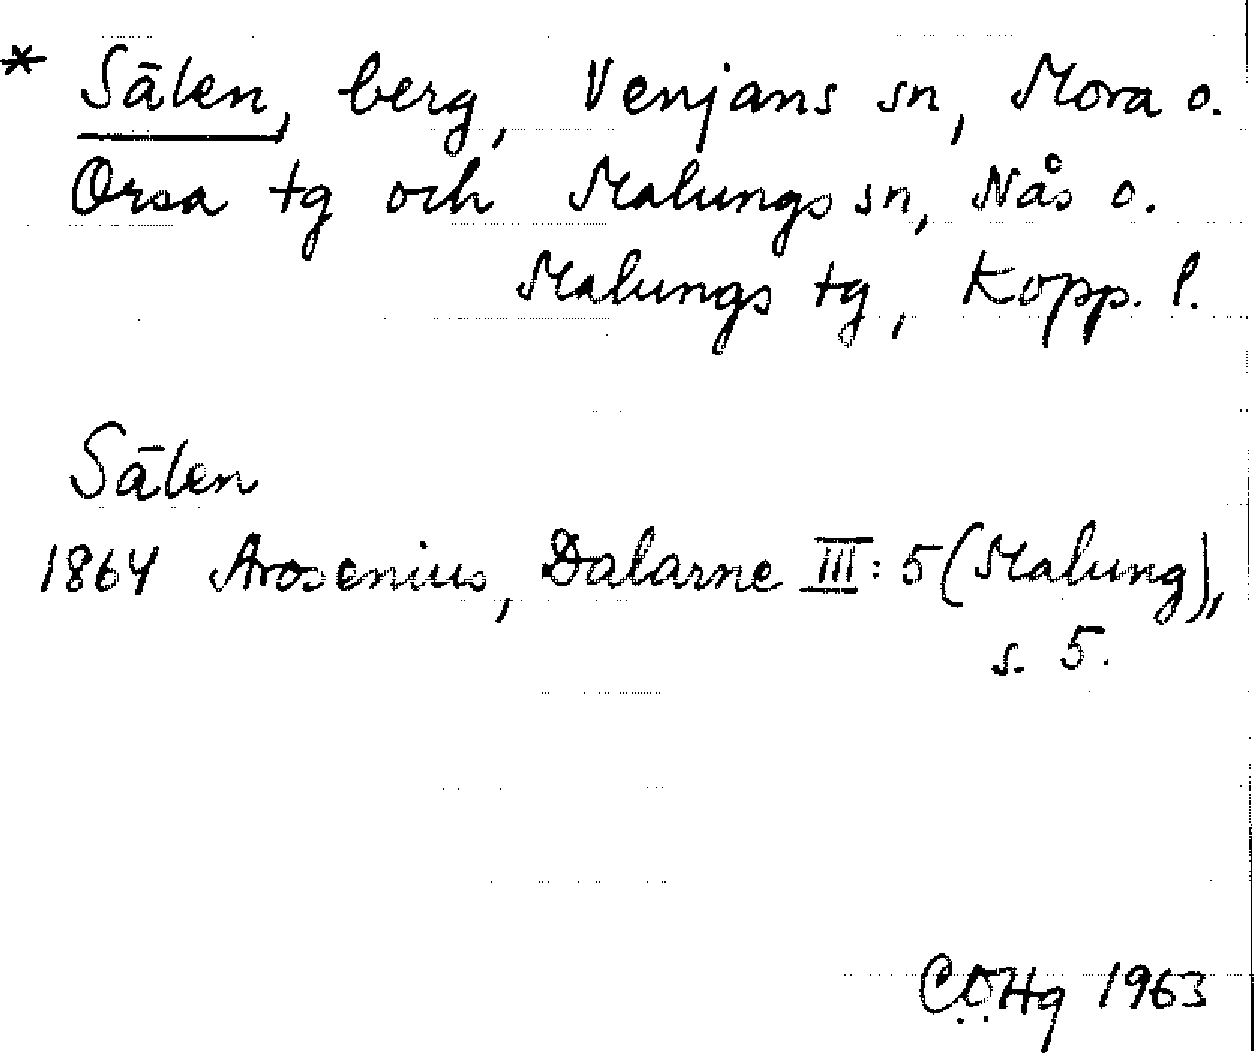 * Sälen, berg, Venjans sn, Mora o.
Orsa tg och Malungs sn, Nås o.
Malungs tg, Kopp. l.
Sälen
1864 Arosenius, Dalarne III: 5 (Malung),
s. 5.
C.O.Hg 1963